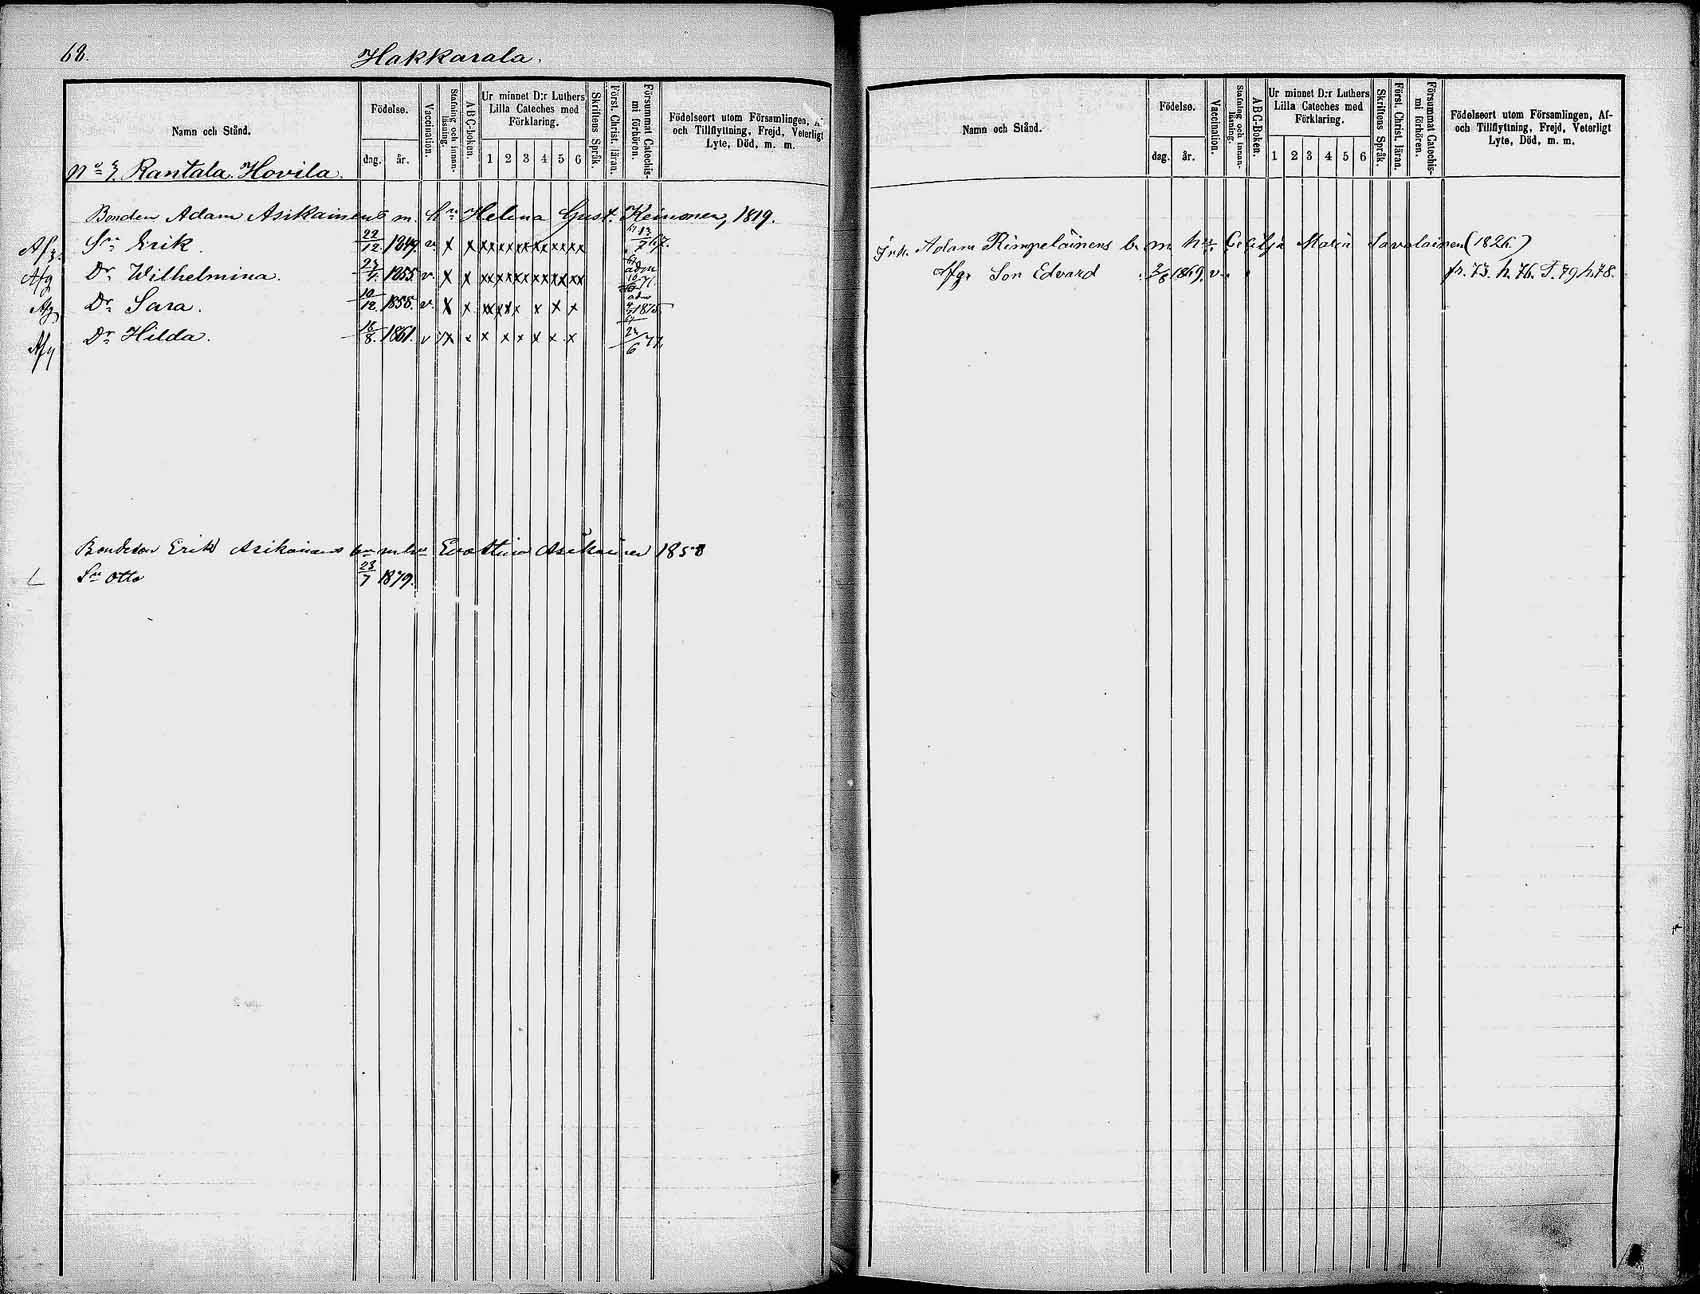 68.
Hakkarala.
Namn och Stånd.
Födelse.
dag. år.
Vaccination.
Stafning och innanläsning.
ABC-Boken.
Ur minnet D:r Luthers Lilla Cateches med Förklaring.
1 2 3 4 5 6
Skriftens Språk.
Först. Christ. läran.
Försummat Catechismi förhören.
Födelseort utom Församlingen, Af-
och Tillflyttning, Frejd, Veterligt
Lyte, Död, m. m.
No 7. Rantala. Hovila.
Bonden Adam Asikainens m. Helena Gust. Keinonen, 1819.
Afg. Sn Erik. 22/12. 1849. v. x x xx xx xx xx xx xx 67.
Afg Dr Wilhelmina. 1855 v. x x xx xx xx xx xx xx 71.
Afg Dr Sara. 10/12. 1858. v. x x xx xx x x x x 1875
Afg Dr Hilda. 18/8. 1861. v x x x x x x x x 23/6 77.
Bondeson Erik Asikainens Asikainen 1858
Sn Otto 23/7 1879.
Namn och Stånd.
Födelse.
dag. år.
Vaccination.
Stafning och innanläsning.
ABC-Boken.
Ur minnet D:r Luthers Lilla Cateches med Förklaring.
1 2 3 4 5 6
Skriftens Språk.
Först. Christ. läran.
Försummat Catechismi förhören.
Födelseort utom Församlingen, Af-
och Tillflyttning, Frejd, Veterligt
Lyte, Död, m. m.
Inh. Adam Rimpeläinens b. m. h. Cecilja Maria Savolainen (1826)
Afg. Son Edvard 2/8 1869. v. fr. 73. h. 76. F. 79 h 78.